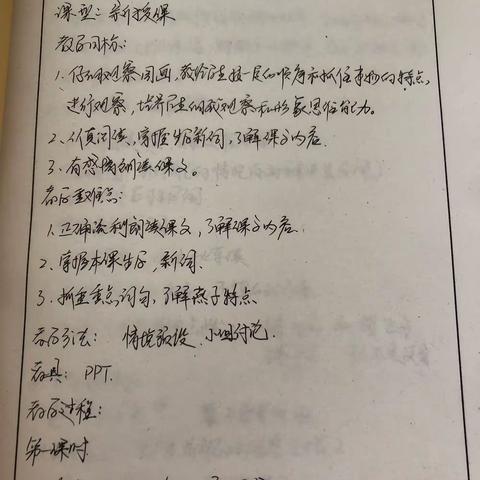 课型：新授课
教学目标：
1.仔细观察图画，教给学生按一定的顺序和抓住事物的特点，
进行观察，培养学生细致观察和形象思维能力。
2.认真阅读，掌握生字新词，了解课文内容
3.有感情朗读课文。
教学重难点：
1.正确流利朗读课文，了解课文内容.
2.掌握本课生字，新词.
3.抓重点词句，了解燕子特点
教学方法：情境教设、小组讨论.
教具：PPT.
教学过程：
第一课时